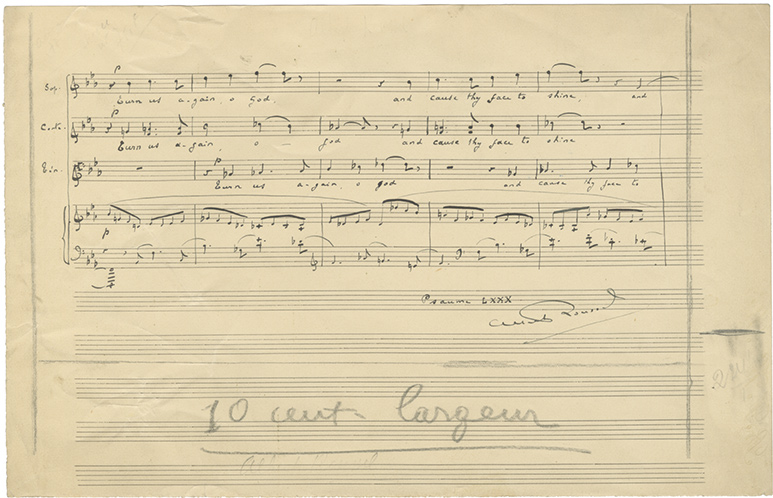 Sop. Turn us a-gain, o God, and cause thy face to shine, and
C.to. Turn us a-gain, o — god and cause thy face to shine
Ten. Turn us a-gain, o god and cause thy face to
Psaume LXXX
Albert Roussel
10 cent. largeur